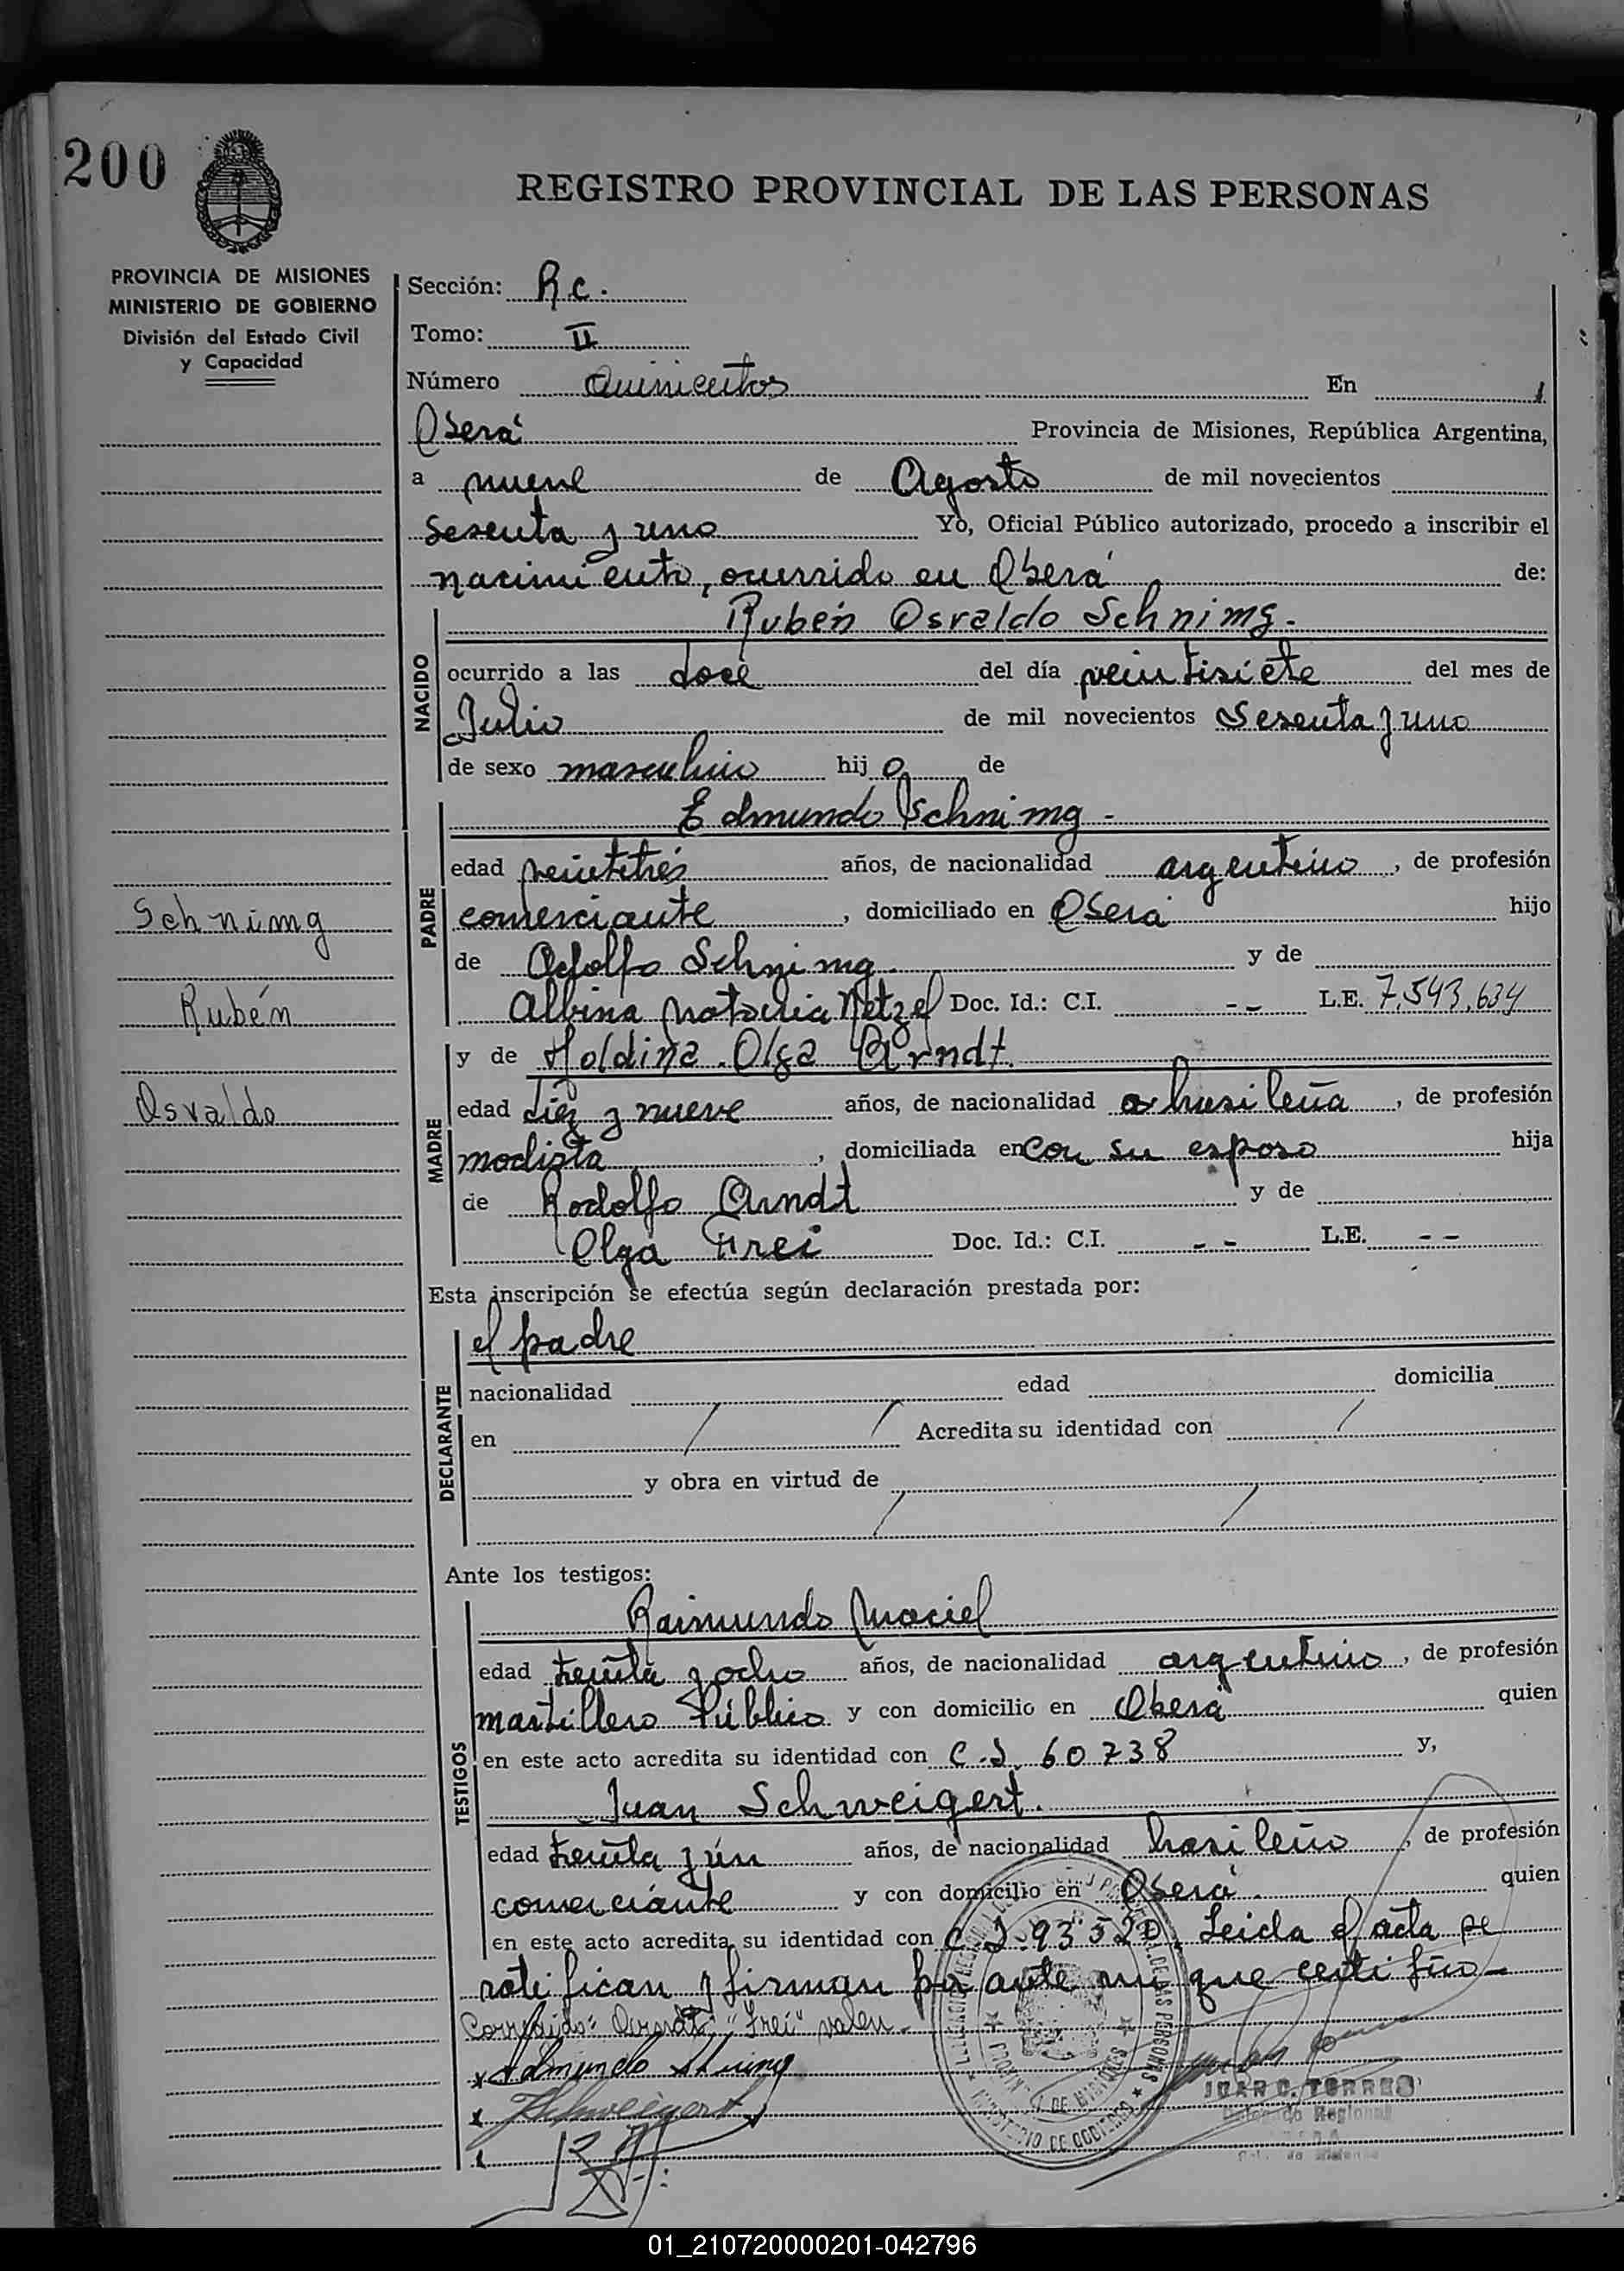 200
REGISTRO PROVINCIAL DE LAS PERSONAS
PROVINCIA DE MISIONES
MINISTERIO DE GOBIERNO
División del Estado Civil
y Capacidad
Sección: R.c.
Tomo: II
Número Quinientos En
Oberá Provincia de Misiones, República Argentina,
a nueve de Agosto de mil novecientos
sesenta y uno Yo, Oficial Público autorizado, procedo a inscribir el
nacimiento, ocurrido en Oberá de:
NACIDO
Rubén Osvaldo Schnimg.-
ocurrido a las doce del día veintisiete del mes de
Julio de mil novecientos Sesenta y uno
de sexo masculino hijo de
PADRE
Edmundo Schnimg-
edad veintitrés años, de nacionalidad argentino, de profesión
comerciante, domiciliado en Oberá hijo
de Adolfo Schnimg. y de
Albina Natalia Netzel Doc. Id.: C.I. -- L.E. 7.543.634
Schnimg
Rubén
Osvaldo
MADRE
y de Holdina Olga Arndt.
edad diez y nueve años, de nacionalidad brasileña, de profesión
modista, domiciliada en con su esposo hija
de Rodolfo Arndt y de
Olga Frei Doc. Id.: C.I. -- L.E. --
Esta inscripción se efectúa según declaración prestada por:
DECLARANTE
el padre
nacionalidad edad domicilia
en Acredita su identidad con
y obra en virtud de
Ante los testigos:
TESTIGOS
Raimundo Maciel
edad treinta y ocho años, de nacionalidad argentino, de profesión
martillero Público y con domicilio en Oberá quien
en este acto acredita su identidad con C.I. 60738 y,
Juan Schweigert.
edad treinta y ún años, de nacionalidad brasileño, de profesión
comerciante y con domicilio en Oberá. quien
en este acto acredita su identidad con C.I. 93520. Leida el acta se
ratifican y firman por ante mi que certifico-
Corregido: "Arndt", "Frei" valen-
x Edmundo Schnimg
x JSchweigert
x
JUAN C. TORRES
Delegado Regional
01_210720000201-042796